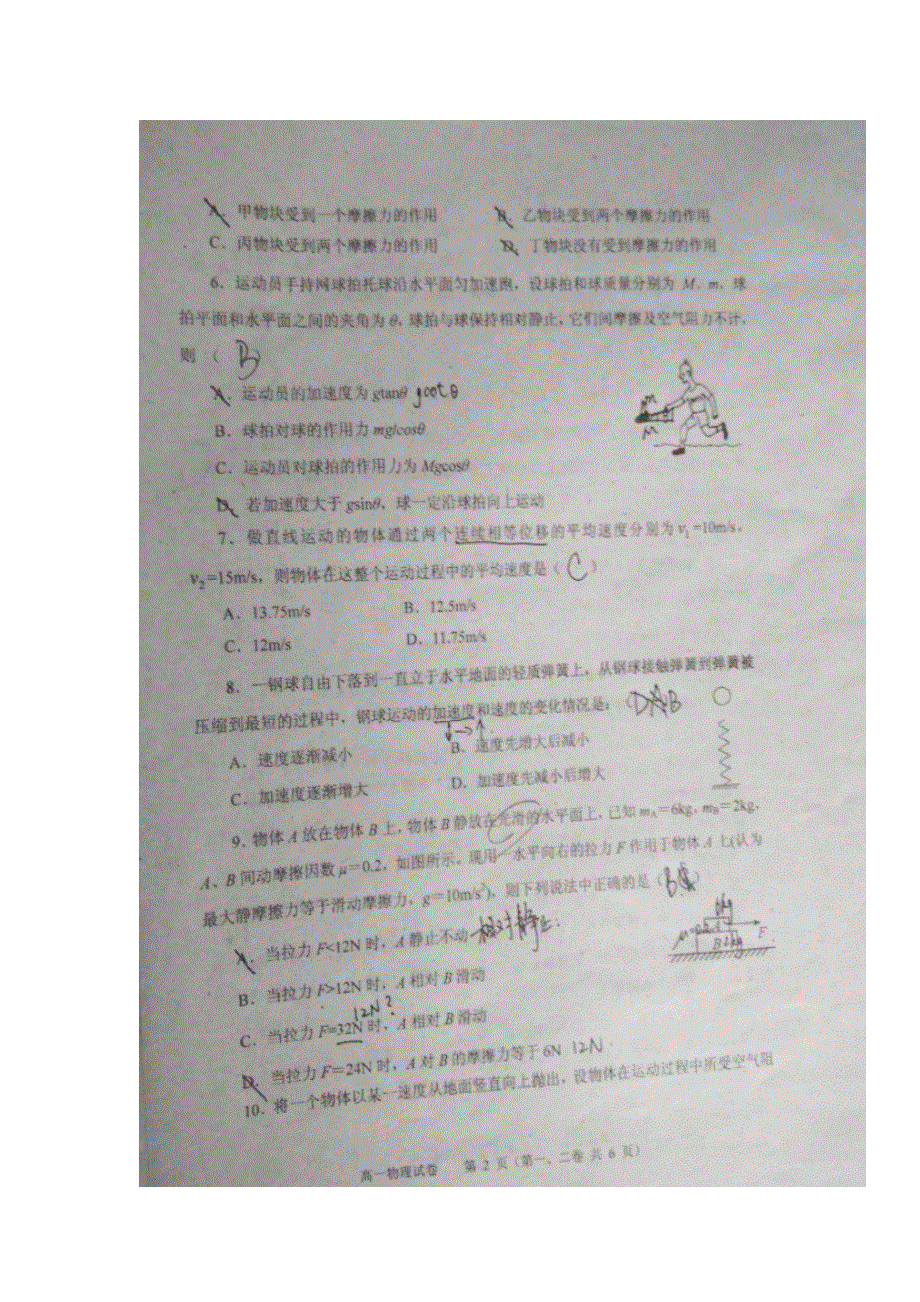 A．甲物块受到一个摩擦力的作用 B．乙物块受到两个摩擦力的作用
C．丙物块受到两个摩擦力的作用 D．丁物块没有受到摩擦力的作用
6．运动员手持网球拍托球沿水平面匀加速跑，设球拍和球质量分别为 M、m，球
拍平面和水平面之间的夹角为 θ，球拍与球保持相对静止，它们间摩擦及空气阻力不计，
则 （ B ）
A．运动员的加速度为 gtanθ gcotθ
M
B．球拍对球的作用力 mg/cosθ
C．运动员对球拍的作用力为 Mgcosθ
D．若加速度大于 gsinθ，球一定沿球拍向上运动
7．做直线运动的物体通过两个连续相等位移的平均速度分别为 v₁=10m/s，
v₂=15m/s，则物体在这整个运动过程中的平均速度是（ C ）
A．13.75m/s B．12.5m/s
C．12m/s D．11.75m/s
8．一钢球自由下落到一直立于水平地面的轻质弹簧上，从钢球接触弹簧到弹簧被
压缩到最短的过程中，钢球运动的加速度和速度的变化情况是：（ B
A．速度逐渐减小 B．速度先增大后减小
C．加速度逐渐增大 D．加速度先减小后增大
9．物体 A 放在物体 B 上，物体 B 静放在光滑的水平面上，已知 mA＝6kg，mB＝2kg，
A、B 间动摩擦因数 μ＝0.2，如图所示。现用一水平向右的拉力 F 作用于物体 A 上(认为
最大静摩擦力等于滑动摩擦力，g＝10m/s²)，则下列说法中正确的是（ B ）
A．当拉力 F<12N 时，A 静止不动 相对静止
B F
B．当拉力 F>12N 时，A 相对 B 滑动
12N？
C．当拉力 F=32N 时，A 相对 B 滑动
D．当拉力 F＝24N 时，A 对 B 的摩擦力等于 6N 12N
10．将一个物体以某一速度从地面竖直向上抛出，设物体在运动过程中所受空气阻
高一物理试卷 第 2 页（第一、二卷 共 6 页）